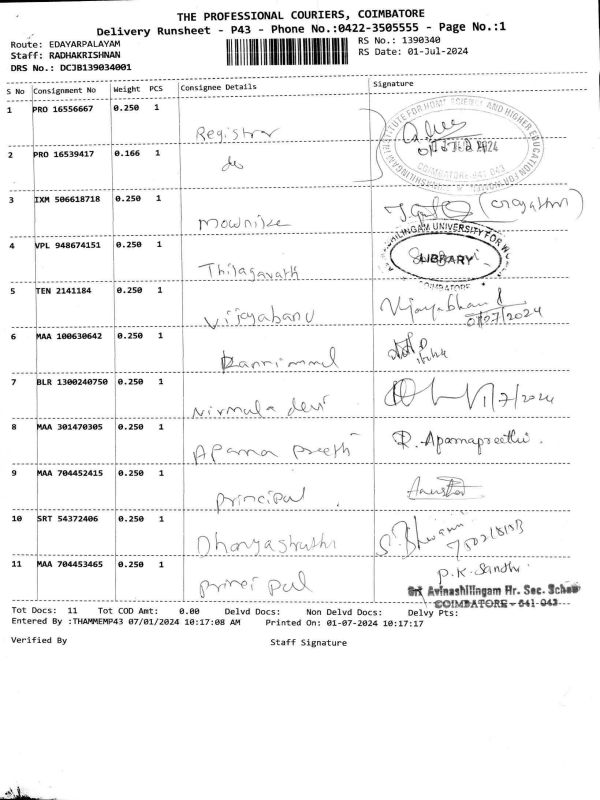 THE PROFESSIONAL COURIERS, COIMBATORE
Delivery Runsheet - P43 - Phone No.:0422-3505555 - Page No.:1
Route: EDAYARPALAYAM RS No.: 1390340
Staff: RADHAKRISHNAN RS Date: 01-Jul-2024
DRS No.: DCJB139034001
S No Consignment No Weight PCS Consignee Details Signature
1 PRO 16556667 0.250 1 Registrar
2 PRO 16539417 0.166 1 do
3 IXM 506618718 0.250 1 Mownika
4 VPL 948674151 0.250 1 Thilagavath LIBRARY
5 TEN 2141184 0.250 1 Vijayabanu Vijayabhanu
01/07/2024
6 MAA 100630642 0.250 1
7 BLR 1300240750 0.250 1 Nirmala devi 1/7/2024
8 MAA 301470305 0.250 1 Aparna preethi R. Aparnapreethi.
9 MAA 704452415 0.250 1 principal
10 SRT 54372406 0.250 1 Dhanyashruthi
11 MAA 704453465 0.250 1 principal P.K. Sandhi
Sri Avinashilingam Hr. Sec. School
COIMBATORE - 641 043
Tot Docs: 11 Tot COD Amt: 0.00 Delvd Docs: Non Delvd Docs: Delvy Pts:
Entered By :THAMMEMP43 07/01/2024 10:17:08 AM Printed On: 01-07-2024 10:17:17
Verified By Staff Signature